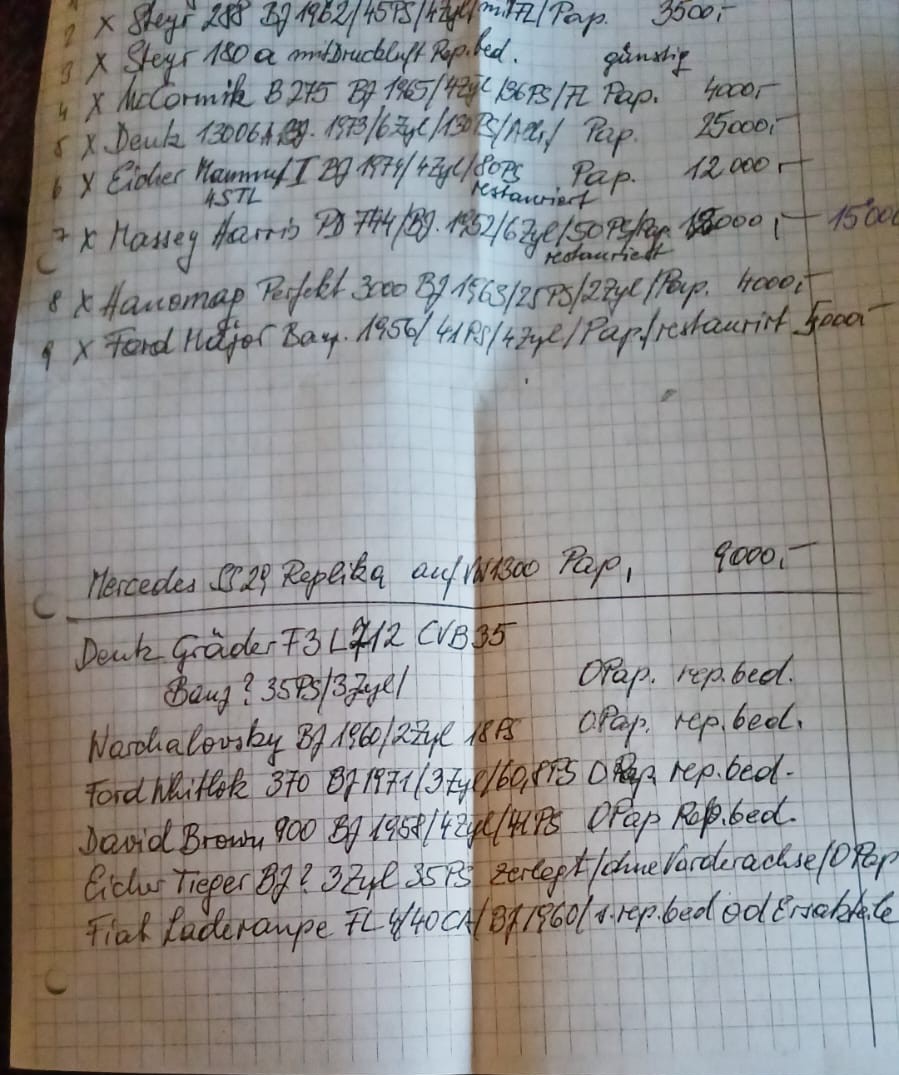 2 X Steyr 288 BJ 1962/45PS/4Zyl/mit FL/Pap. 3500,-
3 X Steyr 180a mit Druckluft Rep.bed. günstig
4 X McCormik B275 BJ 1965/4Zyl/36PS/FL Pap. 4000,-
5 X Deutz 13006A BJ. 1973/6Zyl/130PS/All/ Pap. 25000,-
6 X Eicher Mammut I BJ 1974/4Zyl/80PS Pap. 12.000,-
4STL restauriert
7 X Massey Harris PD 744/BJ. 1952/6Zyl/50PS/Pap. 000,- 15000
restauriert
8 X Hanomag Perfekt 3000 BJ 1963/25PS/2Zyl/Pap. 4000,-
9 X Ford Major Bauj. 1956/41PS/4Zyl/Pap./restaurirt 5000,-
Mercedes SS29 Replika auf VW1300 Pap, 9000,-
Deutz Gräder F3L712 CVB35
Bauj? 35PS/3Zyl/ OPap. rep.bed.
Warchalovsky BJ 1960/2Zyl 18PS OPap. rep.bed.
Ford Whitlok 370 BJ 1971/3Zyl/60,8PS OPap, rep.bed.
David Brown 900 BJ 1958/4Zyl/41PS OPap Rep.bed.
Eicher Tieger BJ? 3Zyl 35PS zerlegt/ohne Vorderachse/OPap
Fiat Laderaupe FL4/40CA/BJ 1960/ rep.bed od Ersatzteile